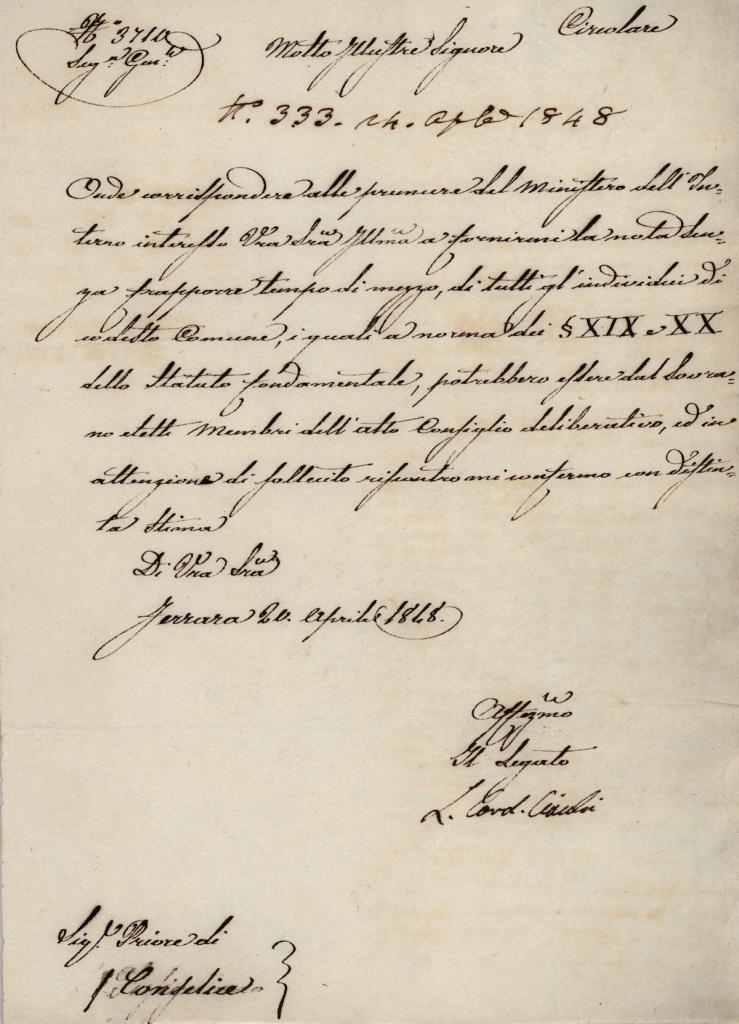 N.° 3710
Circolare
Seg.ria Gen.le
Molto Illustre Signore
N.° 333. 24. Aple 1848
Onde corrispondere alle premure del Ministero dell'In-
terno interesso Vra Sria Illma a fornirmi la nota sen-
za frapporre tempo di mezzo, di tutti gl'individui di
codesto Comune, i quali a norma dei § XIX e XX
dello Statuto fondamentale, potrebbero essere dal Sovra-
no eletti Membri dell'alto Consiglio deliberativo, ed in
attenzione di sollecito riscontro mi confermo con distin-
ta stima
Di Vra Sria
Ferrara 20. Aprile 1848.
Affezmo
Il Legato
L. Card. Ciacchi
Sig.r Priore di
Conselice